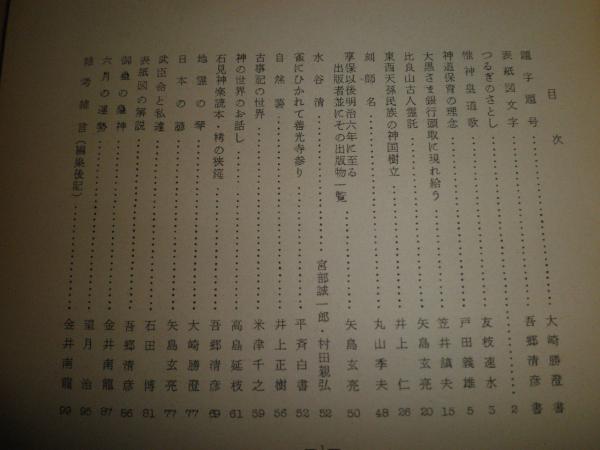 目次
題字題号……大崎勝澄書
表紙図文字……吾郷清彦書
つるぎのさとし……2
惟神皇道歌……友枝速水 3
神道保育の理念……戸田義雄 5
大黒さま銀行頭取に現れ給う……笠井鎮夫 15
比良山古人霊託……矢島玄亮 20
東西天孫民族の神国樹立……井上仁 26
刻師名……丸山季夫 48
享保以後明治六年に至る
出版者並にその出版物一覧……矢島玄亮 50
水谷清……宮部誠一郎・村田親弘 52
雀にひかれて善光寺参り……平斉白書 52
自然暮……井上正樹 56
古事記の世界……米津千之 59
神の世界のお話し……高島延枝 61
石見神楽読本・栲の狭筵……吾郷清彦 69
地霊の琴……大崎勝澄 77
日本の蹟……矢島玄亮 77
武臣命と私達……石田博 81
表紙図の解説……吾郷清彦 86
御壘の桑神……金井南龍 87
六月の運勢……望月治 95
雑考雑言(編集後記)……金井南龍 99
—1—